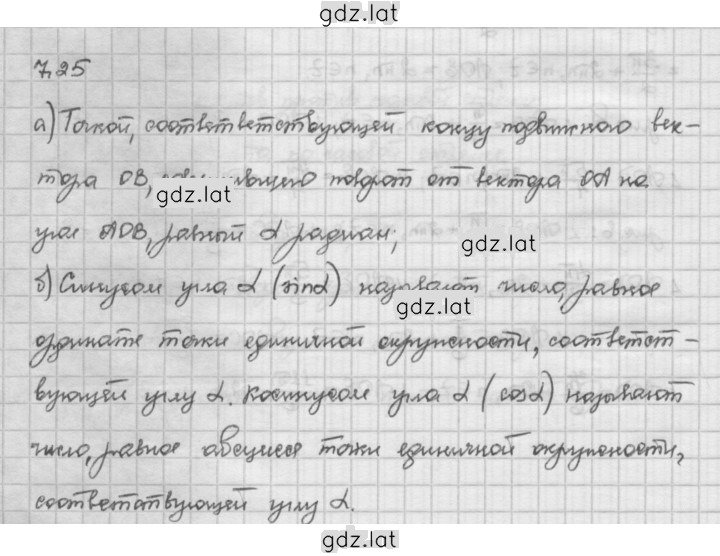 gdz.lat
7.25
а) Точкой, соответствующей концу подвижного век-
тора OB, поворот от вектора OA на
gdz.lat
угол AOB, равный α радиан;
gdz.lat
б) Синусом угла α (sinα) называют число, равное
gdz.lat
ординате точки единичной окружности, соответст-
вующей углу α. Косинусом угла α (cosα) называют
число, равное абсциссе точки единичной окружности,
соответствующей углу α.
gdz.lat